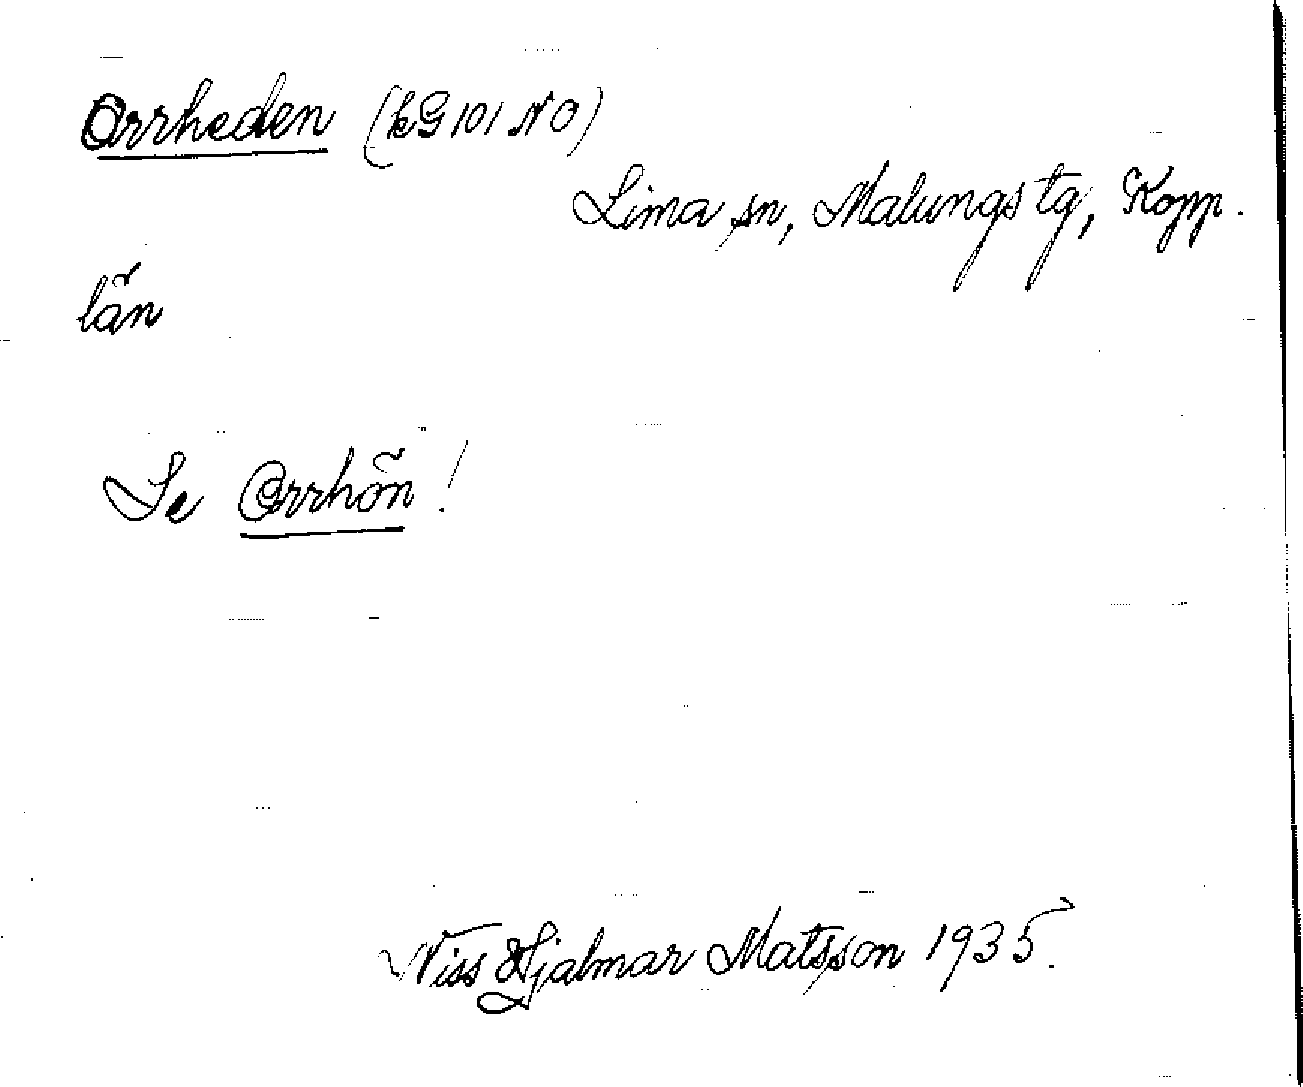 Orrheden (kG 101 NO)
Lima sn, Malungs tg, Kopp.
län
Se Orrhön!
Niss Hjalmar Matsson 1935.